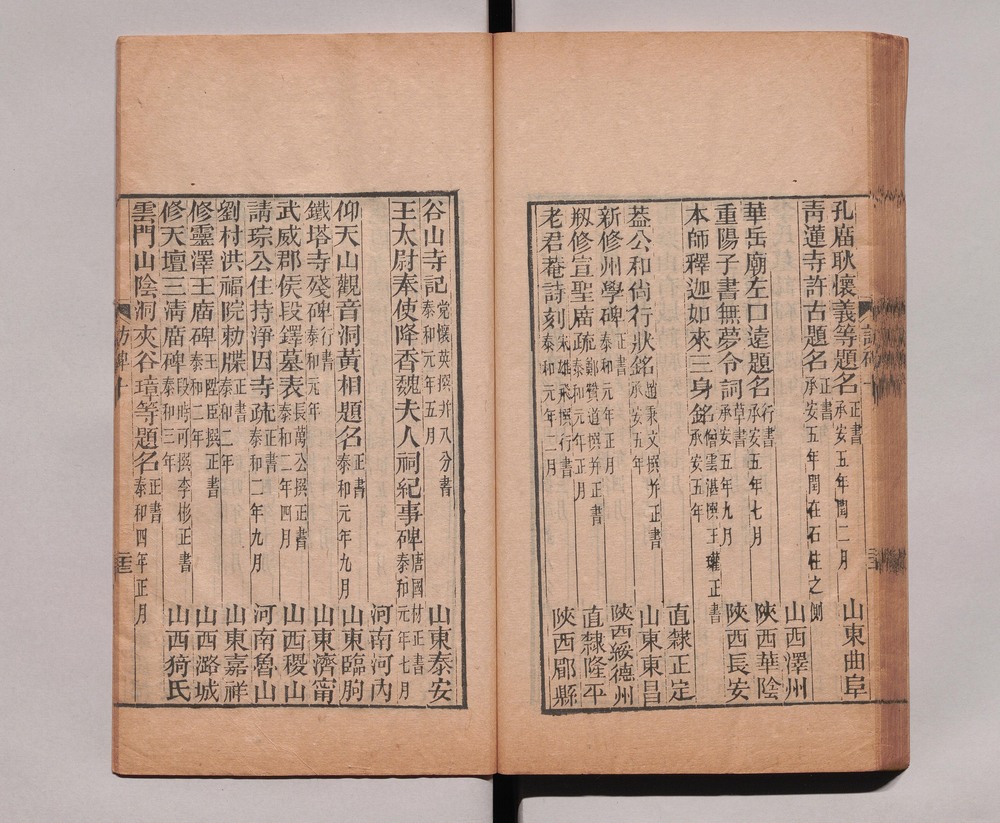 孔廟耿懷義等題名正書承安五年閏二月 山東曲阜
靑蓮寺許古題名正書承安五年閏在石柱之側 山西澤州
華岳廟左口遠題名行書承安五年七月 陝西華陰
重陽子書無夢令詞草書承安五年九月 陝西長安
本師釋迦如來三身銘僧雲湛撰王瓘正書承安五年 直隸正定
益公和尙行狀銘趙秉文撰并正書承安五年 山東東昌
新修州學碑正書泰和元年正月 陝西綏德州
剏修宣聖廟疏鄭賢道撰并正書泰和元年正月 直隸隆平
老君菴詩刻朱雄飛撰行書泰和元年二月 陝西郿縣
谷山寺記党懷英撰并八分書泰和元年五月 山東泰安
王太尉奉使降香魏夫人祠紀事碑唐國材正書泰和元年七月 河南河內
仰天山觀音洞黃相題名正書泰和元年九月 山東臨朐
鐵塔寺殘碑行書泰和元年 山東濟甯
武威郡侯段鐸墓表長萬公撰正書泰和二年四月 山西稷山
請琮公住持淨因寺疏正書泰和二年九月 河南魯山
劉村洪福院勅牒正書泰和二年 山東嘉祥
修靈澤王廟碑王陞臣撰正書泰和二年 山西潞城
修天壇三淸廟碑段時可撰李彬正書泰和三年 山西猗氏
雲門山陰洞夾谷璋等題名正書泰和四年正月